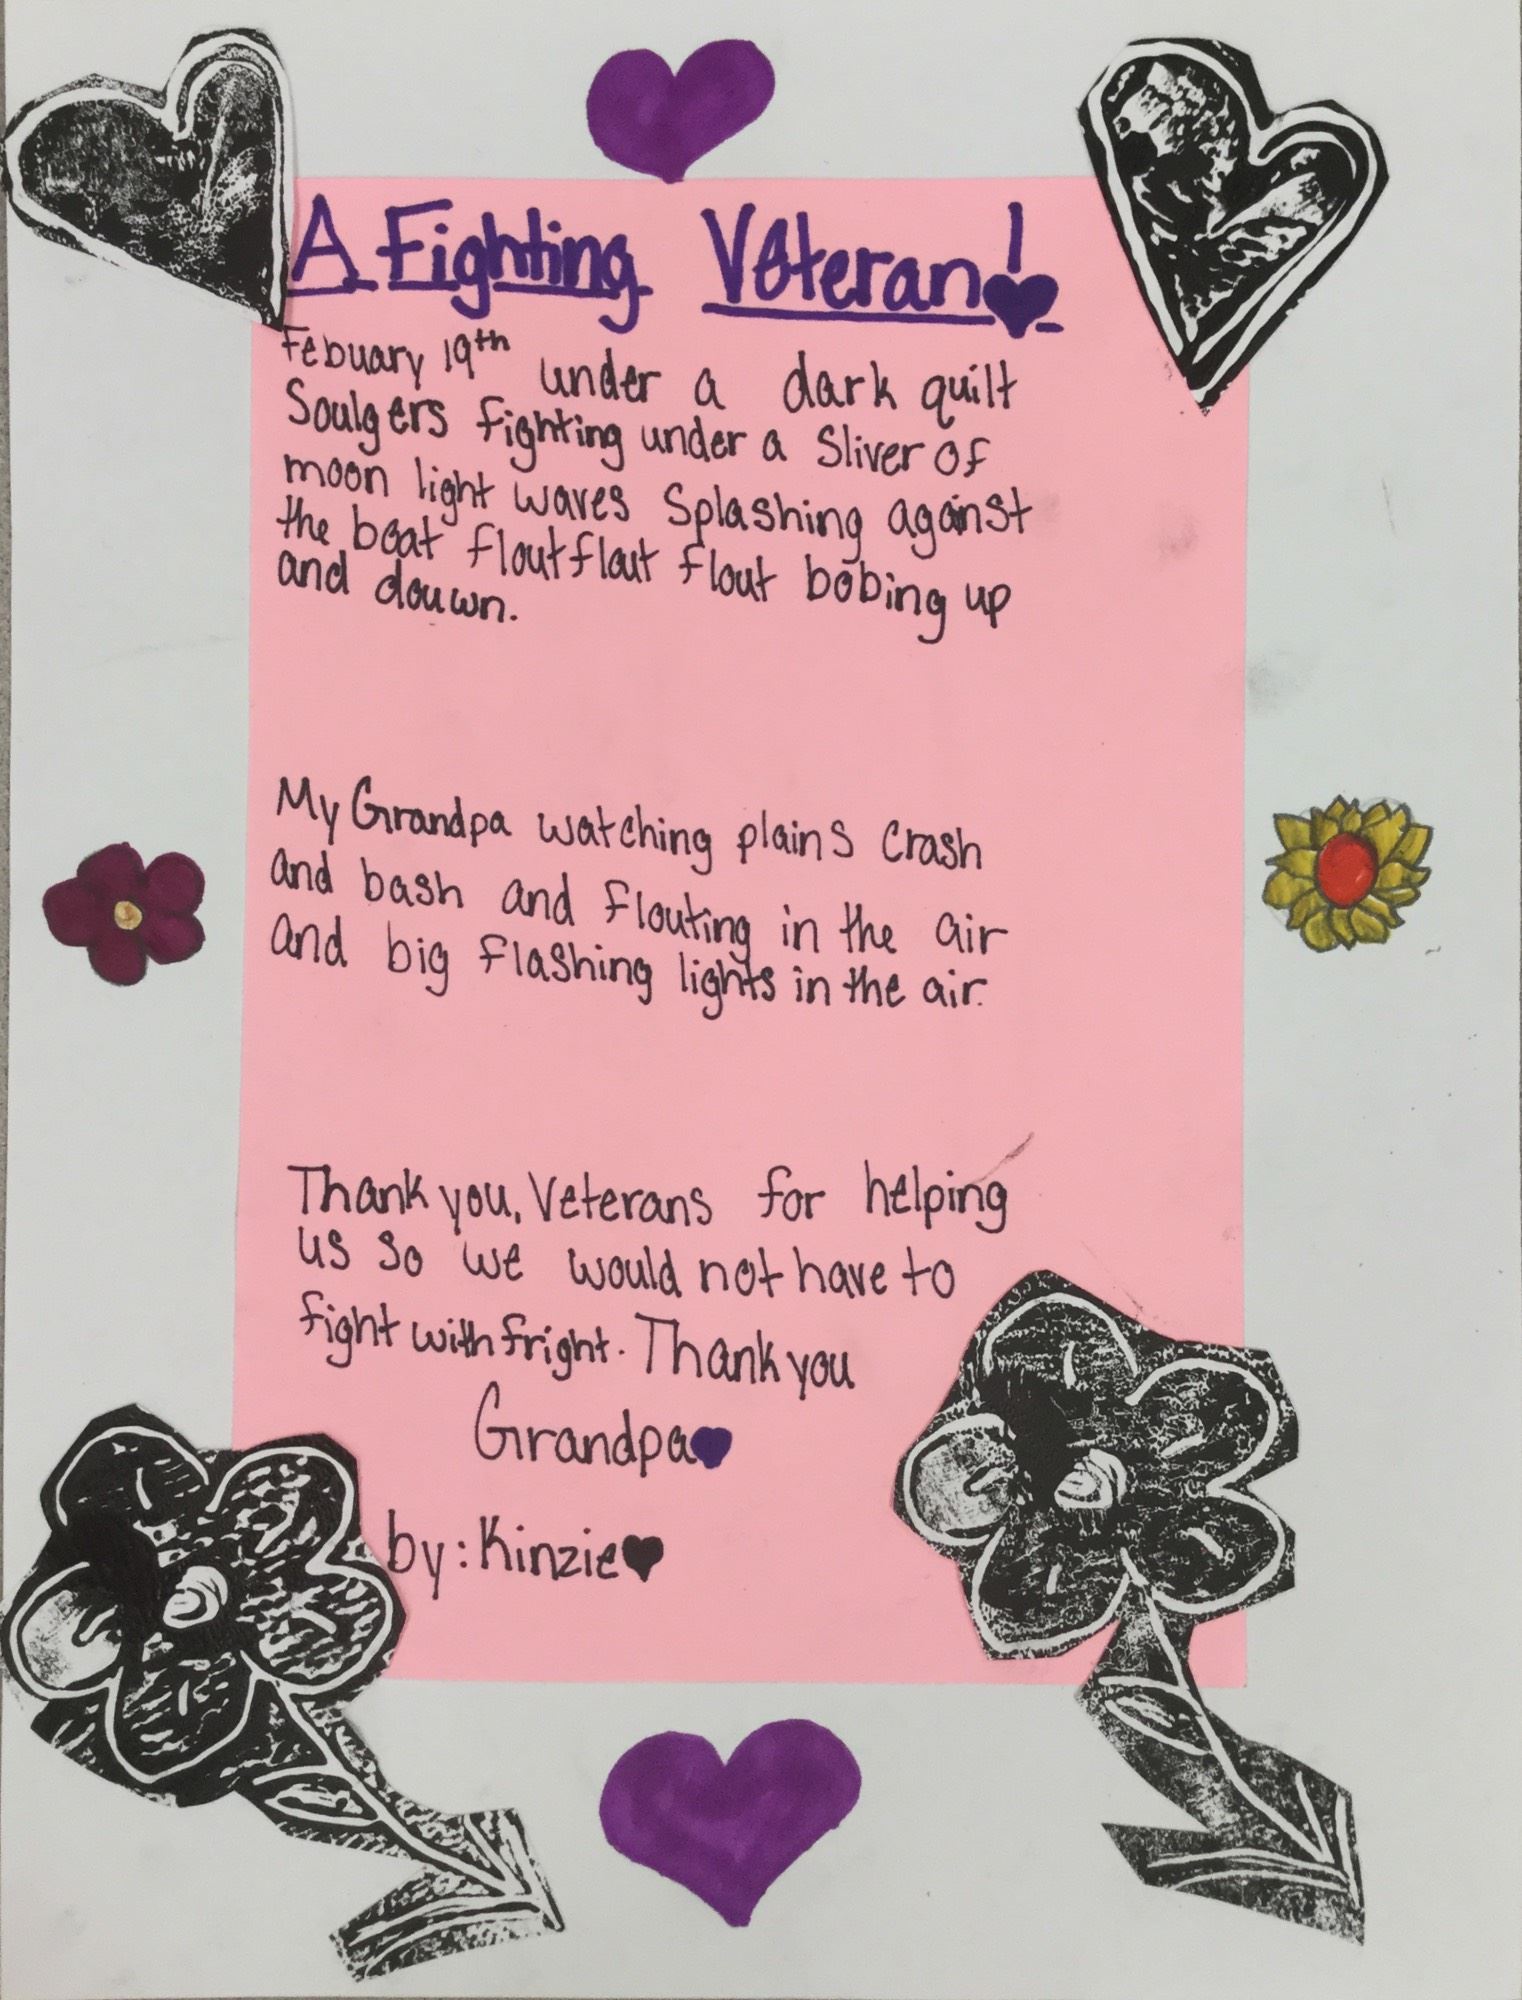 A Fighting Veteran!
Febuary 19th under a dark quilt
Soulgers fighting under a Sliver of
moon light waves Splashing against
the boat floutflout flout bobing up
and douwn.
My Grandpa watching plains crash
and bash and flouting in the air
and big flashing lights in the air.
Thank you, Veterans for helping
us so we would not have to
fight with fright. Thank you
Grandpa
by: Kinzie